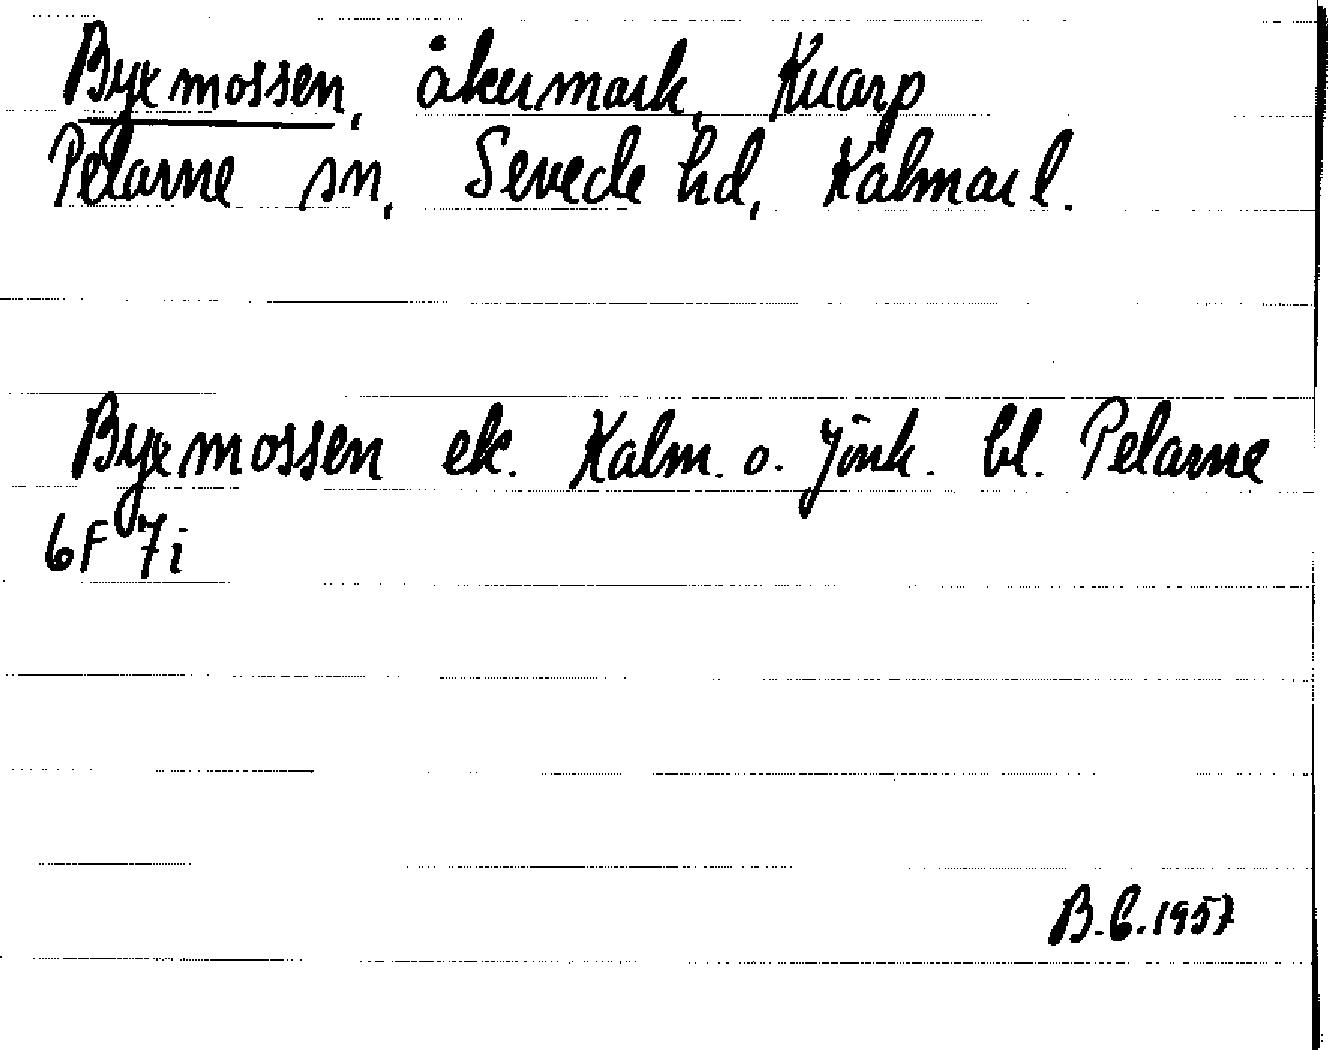 Byxmossen, åkermark, Kvarp
Pelarne sn, Sevede hd, Kalmar l.
Byxmossen ek. Kalm. o. Jönk. bl. Pelarne
6F 7i
B.C. 1957